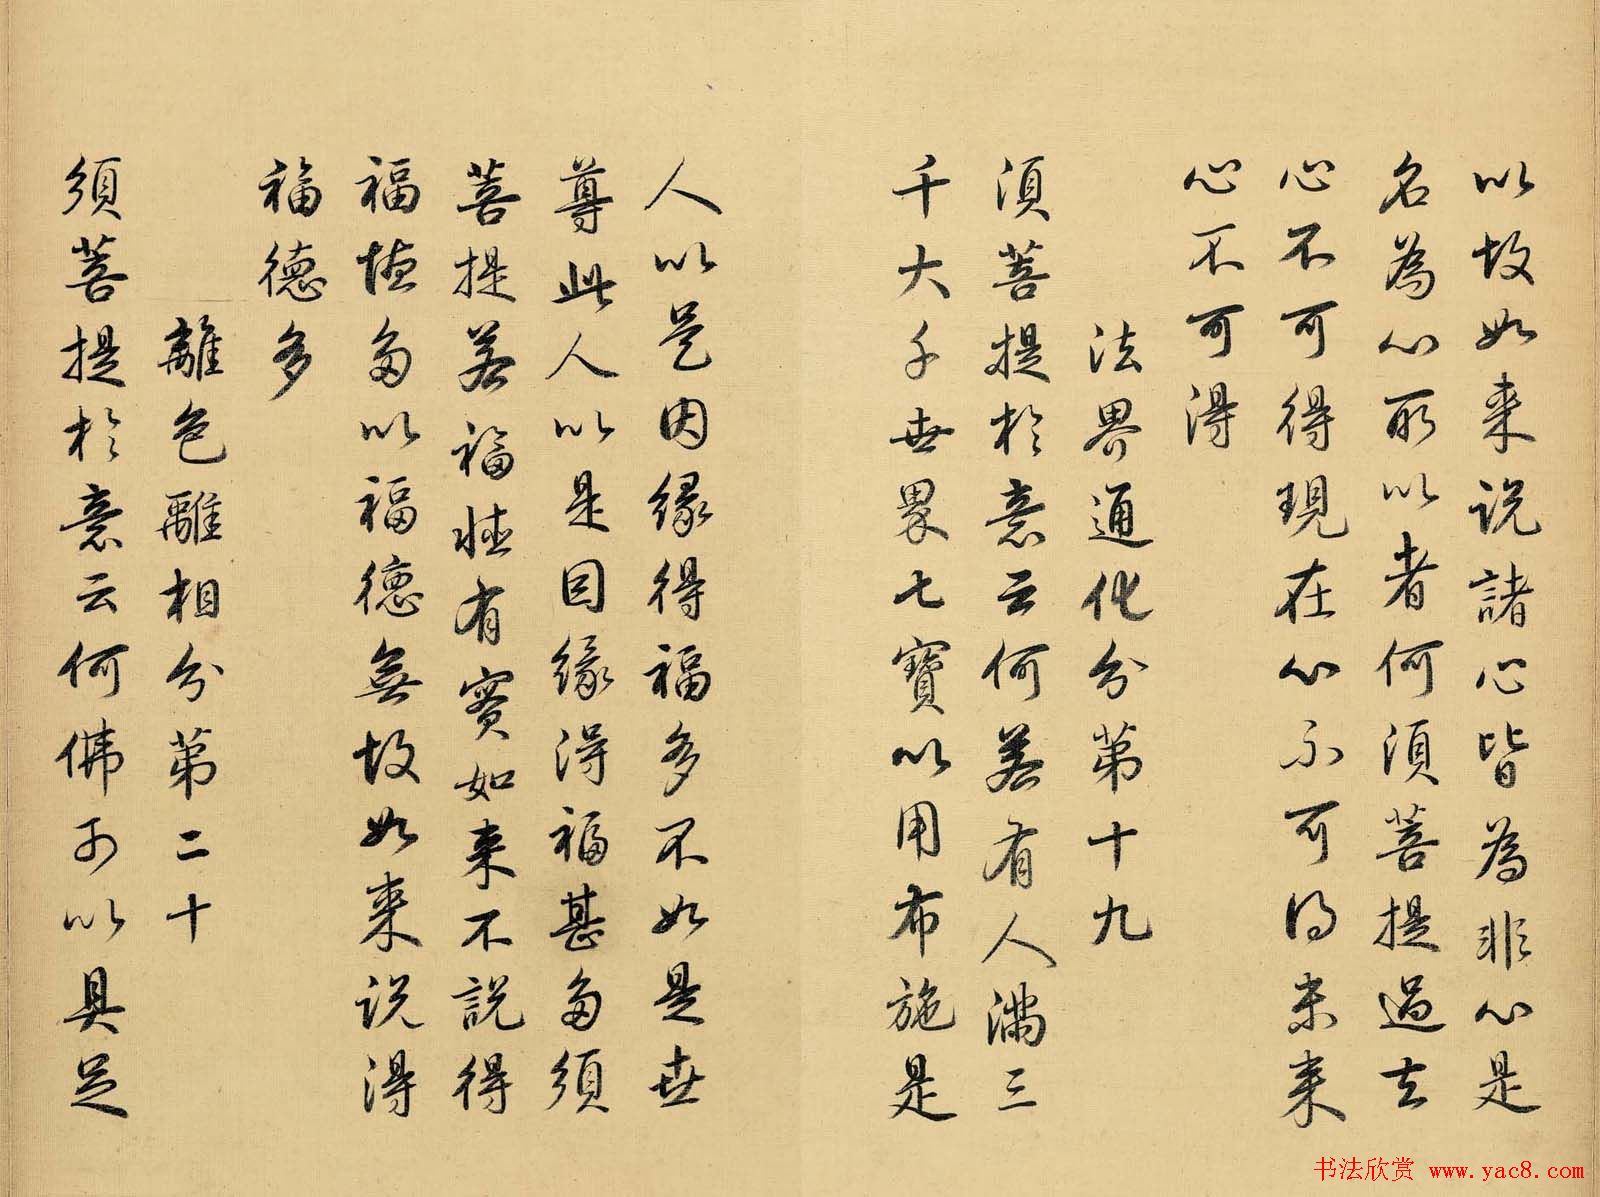 以故如来说諸心皆為非心是
名為心所以者何須菩提過去
心不可得現在心不可得未来
心不可得
法界通化分第十九
須菩提於意云何若有人滿三
千大千世界七寶以用布施是
人以是因緣得福多不如是世
尊此人以是因緣得福甚多須
菩提若福德有實如来不說得
福德多以福德無故如来说得
福德多
離色離相分第二十
須菩提於意云何佛可以具足
书法欣赏 www.yac8.com